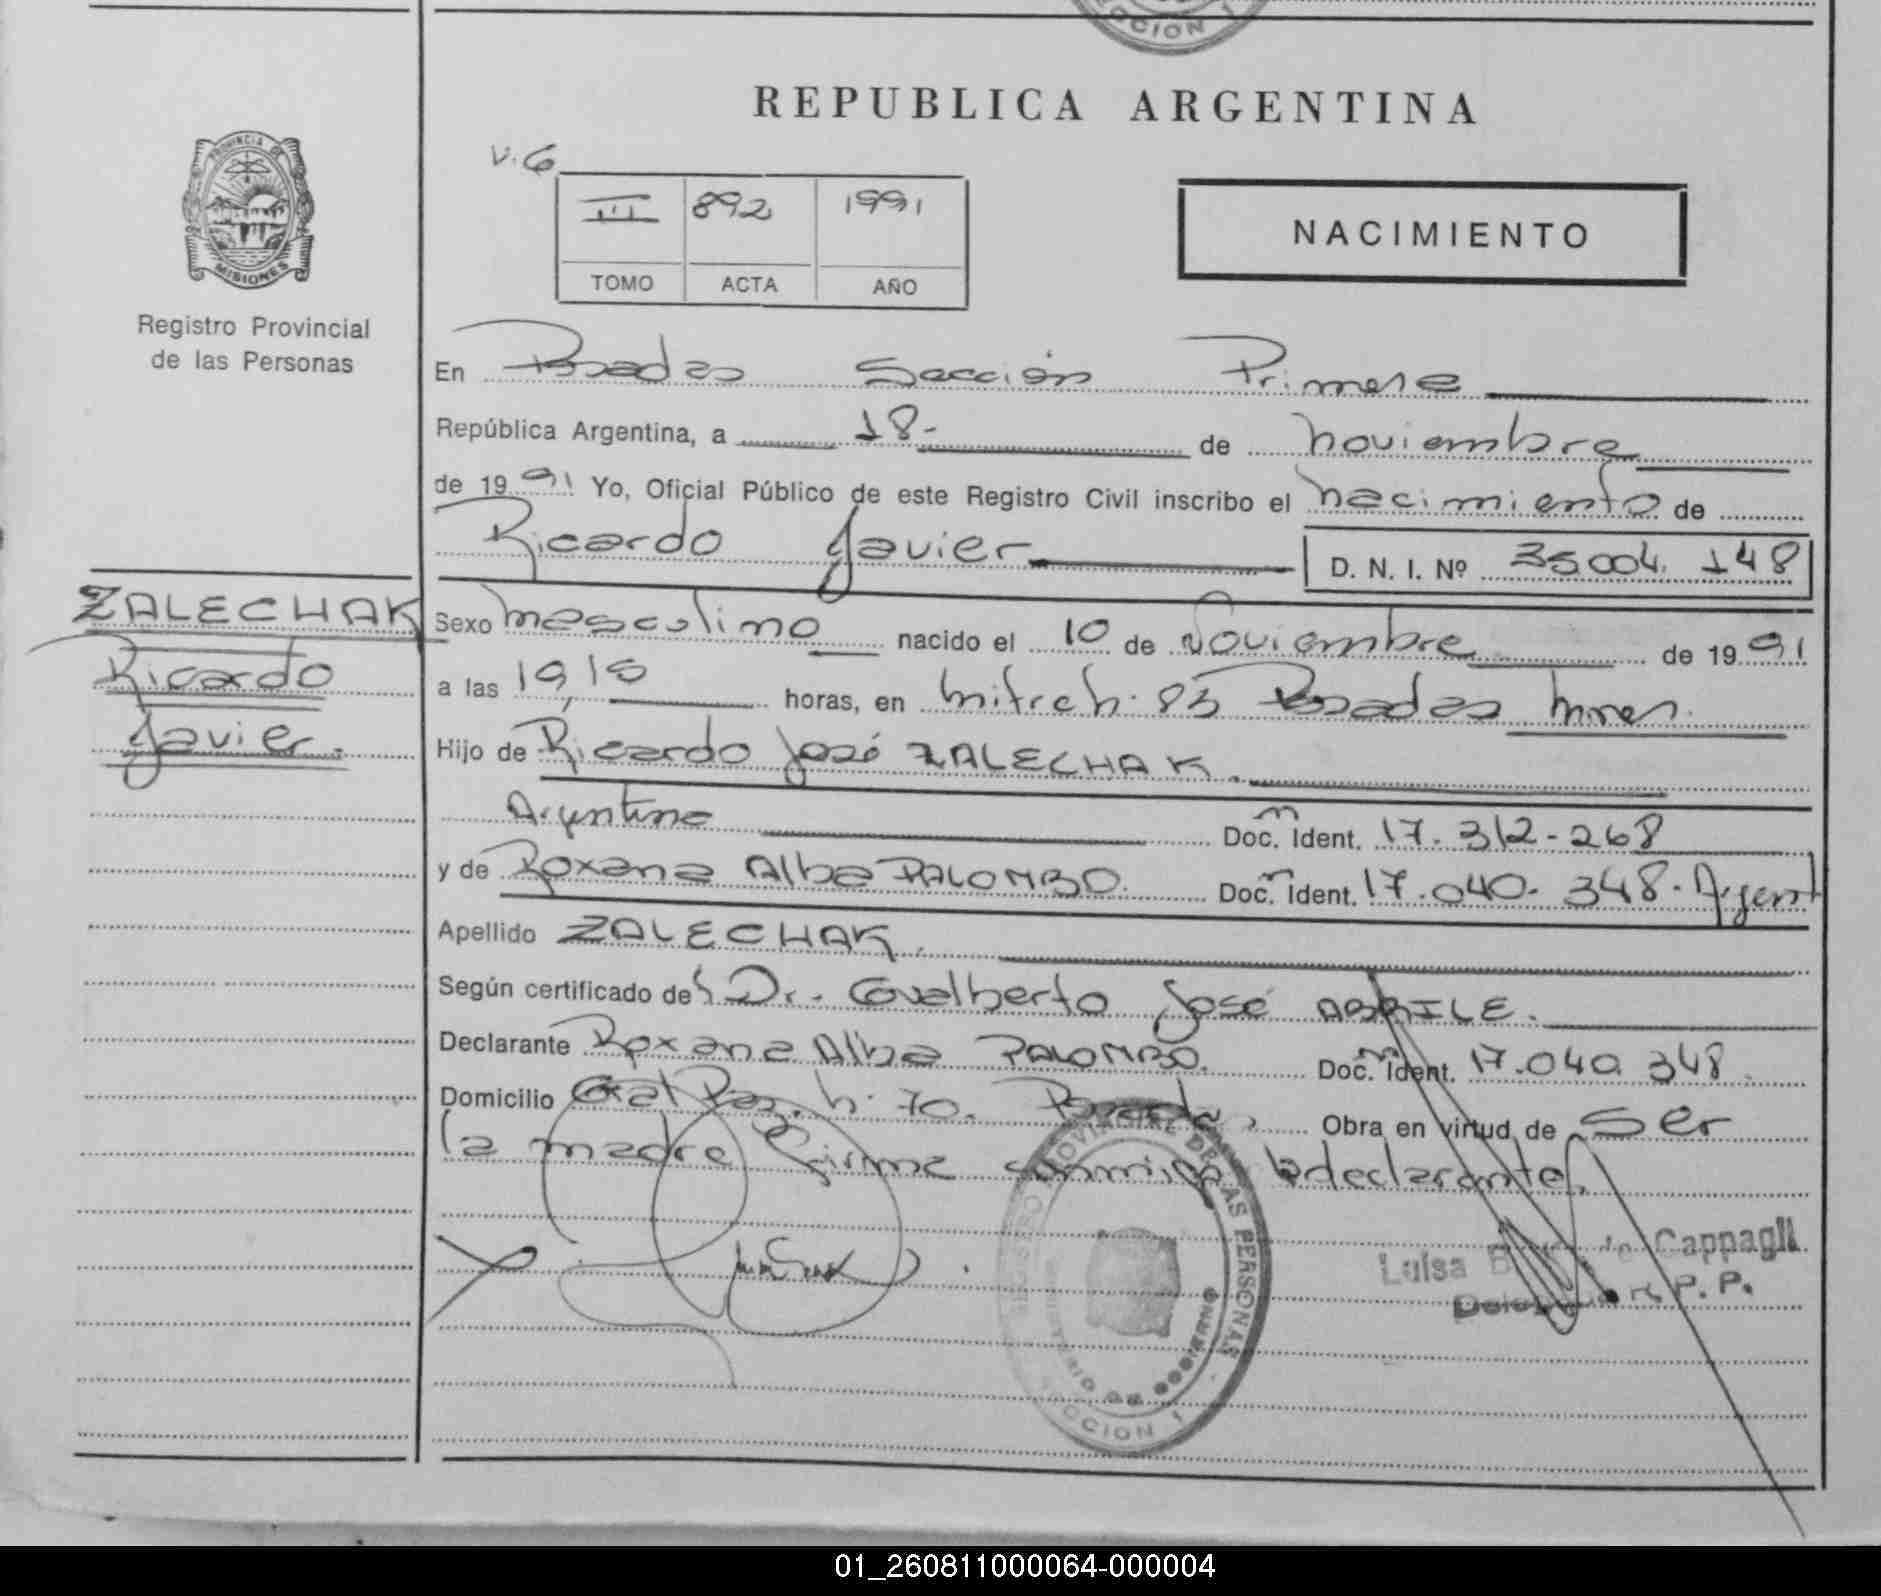 CCION 1
REPUBLICA ARGENTINA
V.G
III 892 1991
TOMO ACTA AÑO
NACIMIENTO
PROVINCIA DE
MISIONES
Registro Provincial
de las Personas
En Posadas Sección Primera
República Argentina, a 18- de noviembre
de 1991 Yo, Oficial Público de este Registro Civil inscribo el nacimiento de
Ricardo Javier D. N. I. Nº 35004.148
ZALECHAK
Ricardo
Javier.
Sexo masculino nacido el 10 de Noviembre de 1991
a las 19,15 horas, en mitre h. 83 Posadas mnes.
Hijo de Ricardo José ZALECHAK.
Argentino Doc. Ident. 17.312-268
y de Roxana Alba PALOMBO. Doc. Ident. 17.040.348. Argent
Apellido ZALECHAK.
Según certificado de Dr. Gualberto José ABRILE.
Declarante Roxana Alba PALOMBO. Doc. Ident. 17.040.348.
Domicilio Gral Paz. h. 70. Posadas Obra en virtud de Ser
la madre firma conmigo la declarante.
REGISTRO PROVINCIAL DE LAS PERSONAS
MINISTERIO DE GOBIERNO
SECCION 1
Luisa B de Cappagli
R. P. P.
01_260811000064-000004